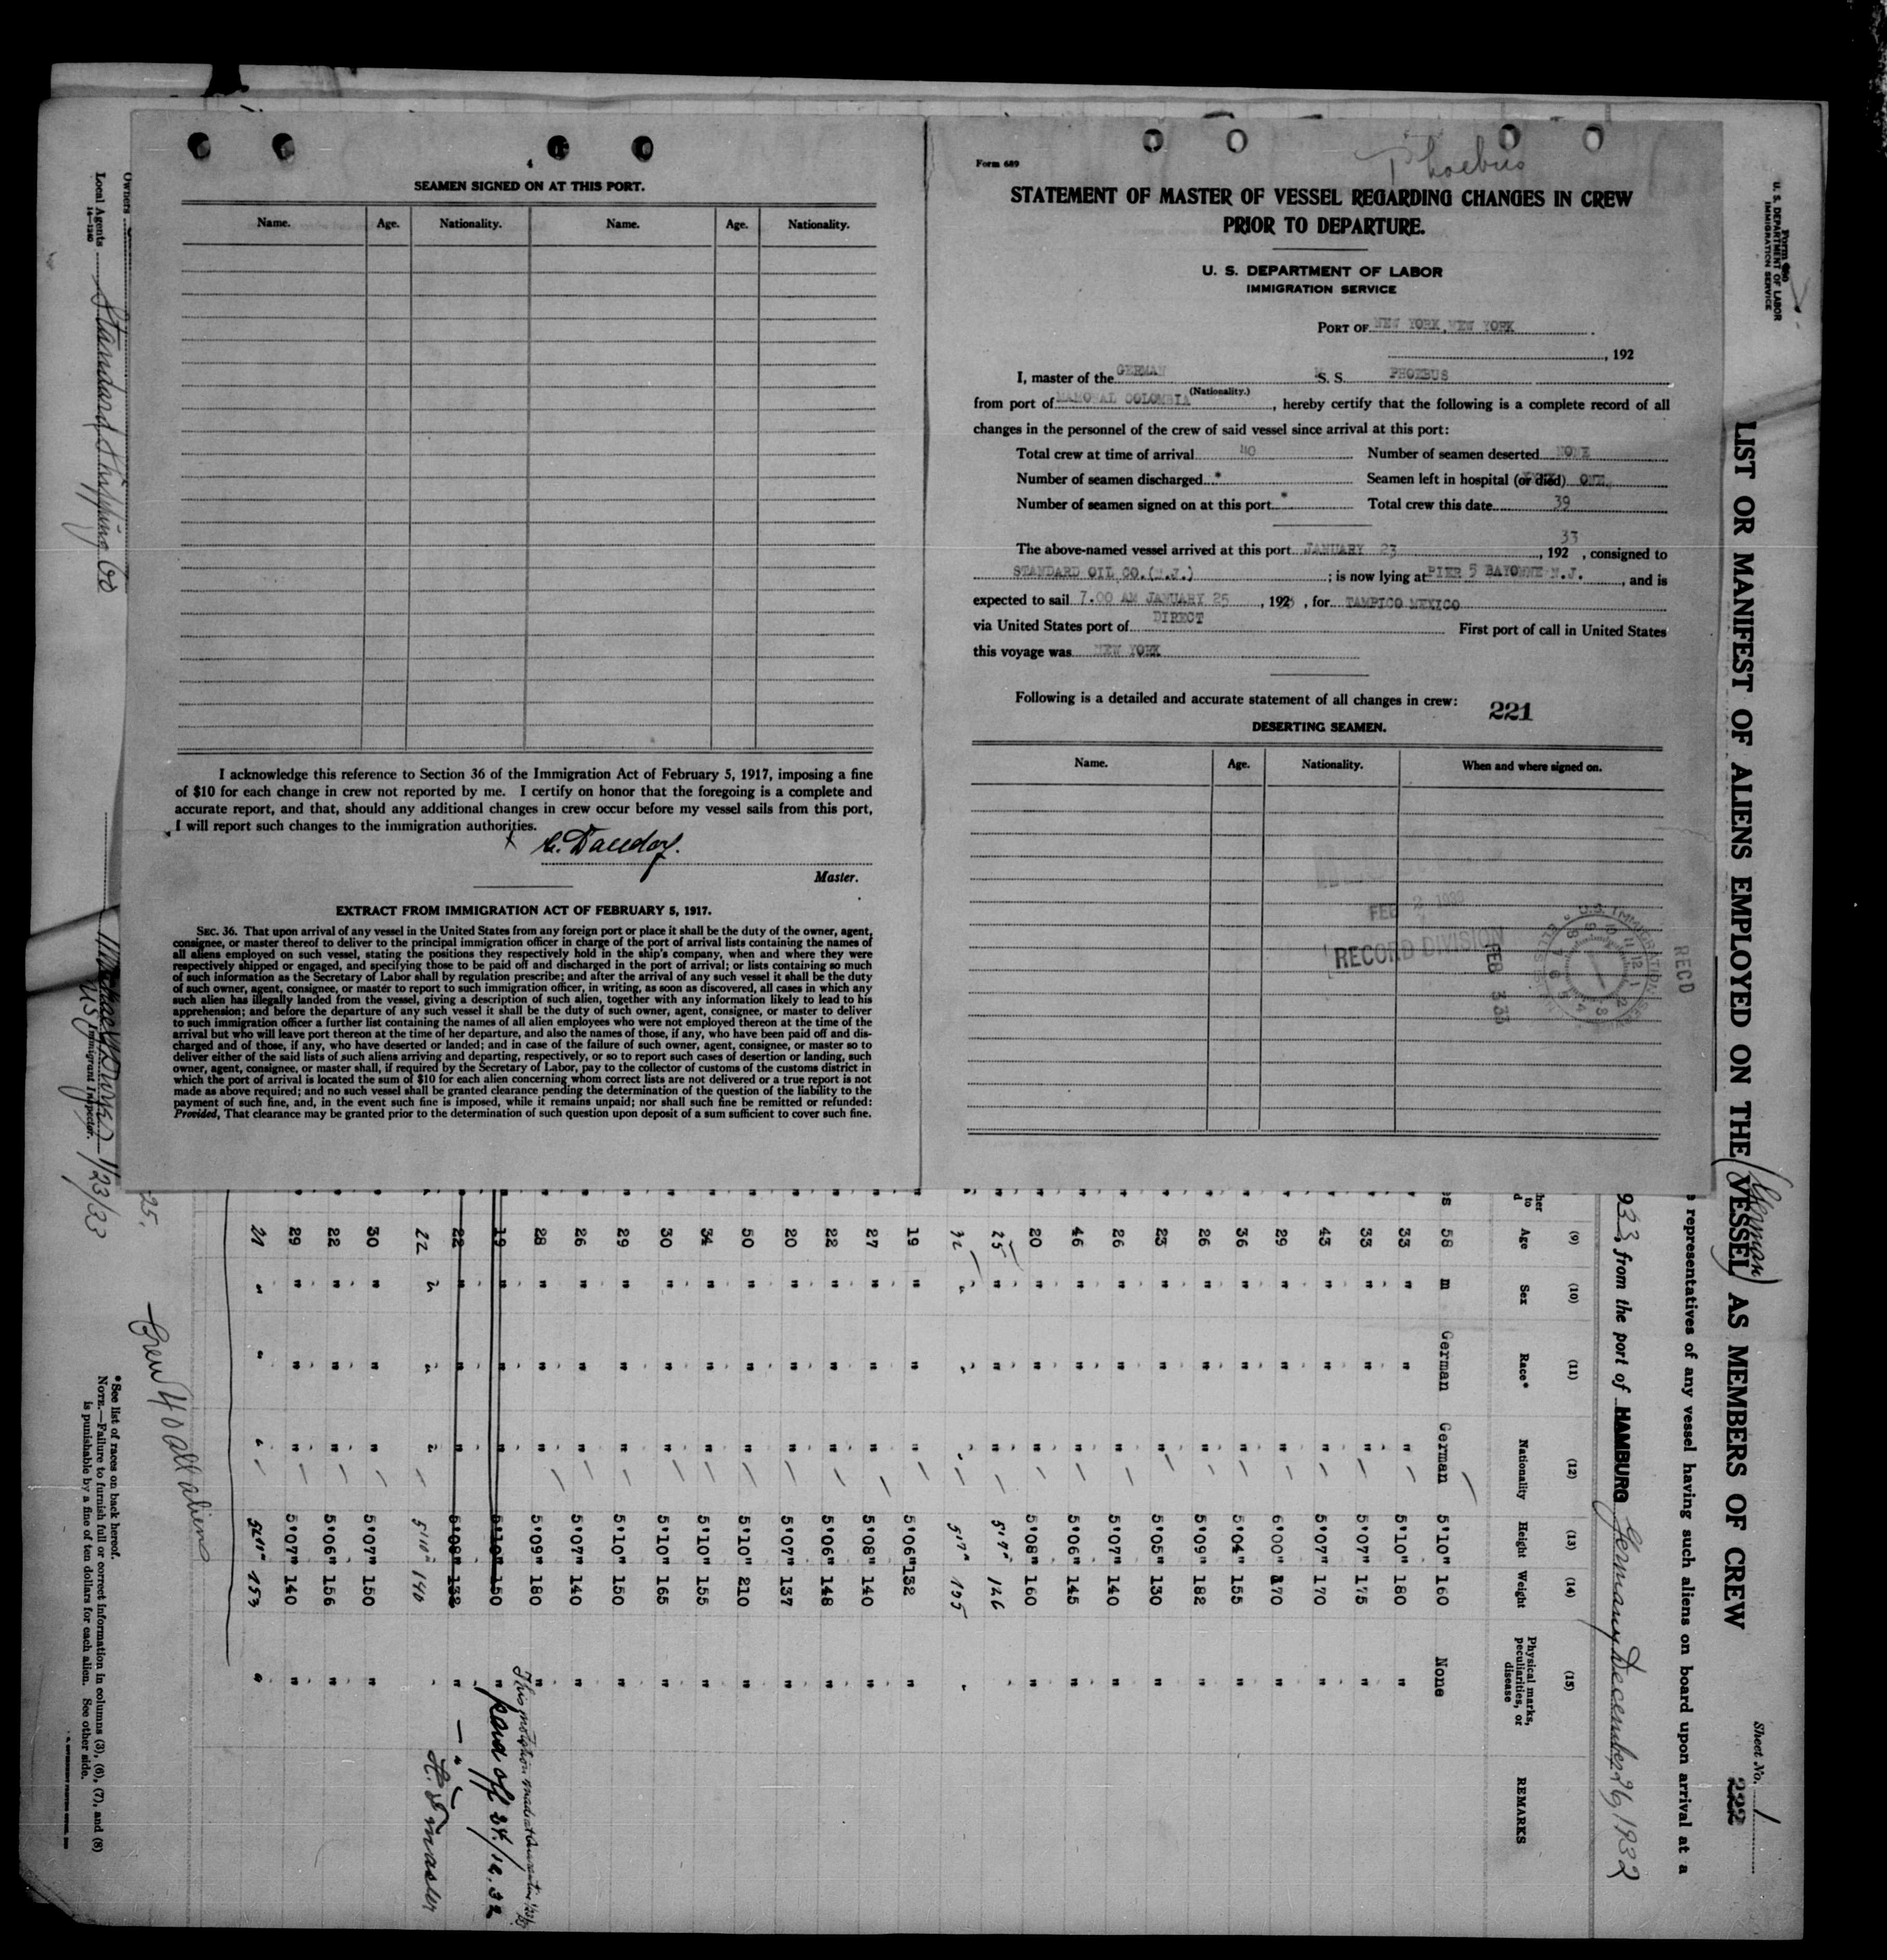 4
SEAMEN SIGNED ON AT THIS PORT.
Name. Age. Nationality. Name. Age. Nationality.
I acknowledge this reference to Section 36 of the Immigration Act of February 5, 1917, imposing a fine
of $10 for each change in crew not reported by me. I certify on honor that the foregoing is a complete and
accurate report, and that, should any additional changes in crew occur before my vessel sails from this port,
I will report such changes to the immigration authorities.
Master.
EXTRACT FROM IMMIGRATION ACT OF FEBRUARY 5, 1917.
SEC. 36. That upon arrival of any vessel in the United States from any foreign port or place it shall be the duty of the owner, agent,
consignee, or master thereof to deliver to the principal immigration officer in charge of the port of arrival lists containing the names of
all aliens employed on such vessel, stating the positions they respectively hold in the ship's company, when and where they were
respectively shipped or engaged, and specifying those to be paid off and discharged in the port of arrival; or lists containing so much
of such information as the Secretary of Labor shall by regulation prescribe; and after the arrival of any such vessel it shall be the duty
of such owner, agent, consignee, or master to report to such immigration officer, in writing, as soon as discovered, all cases in which any
such alien has illegally landed from the vessel, giving a description of such alien, together with any information likely to lead to his
apprehension; and before the departure of any such vessel it shall be the duty of such owner, agent, consignee, or master to deliver
to such immigration officer a further list containing the names of all alien employees who were not employed thereon at the time of the
arrival but who will leave port thereon at the time of her departure, and also the names of those, if any, who have been paid off and dis-
charged and of those, if any, who have deserted or landed; and in case of the failure of such owner, agent, consignee, or master so to
deliver either of the said lists of such aliens arriving and departing, respectively, or so to report such cases of desertion or landing, such
owner, agent, consignee, or master shall, if required by the Secretary of Labor, pay to the collector of customs of the customs district in
which the port of arrival is located the sum of $10 for each alien concerning whom correct lists are not delivered or a true report is not
made as above required; and no such vessel shall be granted clearance pending the determination of the question of the liability to the
payment of such fine, and, in the event such fine is imposed, while it remains unpaid; nor shall such fine be remitted or refunded:
Provided, That clearance may be granted prior to the determination of such question upon deposit of a sum sufficient to cover such fine.
Form 689
Phoebus
STATEMENT OF MASTER OF VESSEL REGARDING CHANGES IN CREW
PRIOR TO DEPARTURE.
U. S. DEPARTMENT OF LABOR
IMMIGRATION SERVICE
PORT OF NEW YORK, NEW YORK
, 192
I, master of the GERMAN S. S. PHOEBUS
(Nationality.)
from port of MAMONAL COLOMBIA, hereby certify that the following is a complete record of all
changes in the personnel of the crew of said vessel since arrival at this port:
Total crew at time of arrival 40 Number of seamen deserted NONE
Number of seamen discharged * Seamen left in hospital (or died) ONE
Number of seamen signed on at this port * Total crew this date 39
The above-named vessel arrived at this port JANUARY 23, 192 33, consigned to
STANDARD OIL CO.(N.J.); is now lying at PIER 5 BAYONNE N.J., and is
expected to sail 7.00 AM JANUARY 25, 192, for TAMPICO MEXICO
via United States port of DIRECT First port of call in United States
this voyage was NEW YORK
Following is a detailed and accurate statement of all changes in crew:
221
DESERTING SEAMEN.
Name. Age. Nationality. When and where signed on.
FEB 2
RECORD DIVISION
FEB 33
RECD
Form 680
U. S. DEPARTMENT OF LABOR
IMMIGRATION SERVICE
Sheet No. 1
222
LIST OR MANIFEST OF ALIENS EMPLOYED ON THE (German) VESSEL AS MEMBERS OF CREW
representatives of any vessel having such aliens on board upon arrival at a
933, from the port of HAMBURG Germany December 26, 1932
(9) (10) (11) (12) (13) (14) (15)
Age Sex Race* Nationality Height Weight Physical marks, peculiarities, or disease REMARKS
58 m German German 5'10" 160 None
33 " " " 5'10" 180 "
33 " " " 5'07" 175 "
43 " " " 5'07" 170 "
29 " " " 6'00" 170 "
36 " " " 5'04" 155 "
26 " " " 5'09" 182 "
23 " " " 5'05" 130 "
26 " " " 5'07" 140 "
46 " " " 5'06" 145 "
20 " " " 5'08" 160 "
25 " " " 5'7" 146
32 " " " 5'7"
19 " " " 5'06" 132 "
27 " " " 5'08" 140 "
22 " " " 5'06" 148 "
20 " " " 5'07" 137 "
50 " " " 5'10" 210 "
34 " " " 5'10" 155 "
30 " " " 5'10" 165 "
29 " " " 5'10" 150 "
26 " " " 5'07" 140 "
28 " " " 5'09" 180 "
19 " " " 5'10" 150 " paid off 24./12.32
22 " " " 5'08" 132 " — " —
22 " " " 5'10" 140
30 " " " 5'07" 150 "
22 " " " 5'06" 156 "
29 " " " 5'07" 140 "
21 " " " 5'11" 153 "
25.
Crew 40 all aliens
*See list of races on back hereof.
NOTE.—Failure to furnish full or correct information in columns (3), (6), (7), and (8)
is punishable by a fine of ten dollars for each alien. See other side.
Owners
Local Agents Standard Shipping Co
14—1240
US Immigrant Inspector. 1/23/33